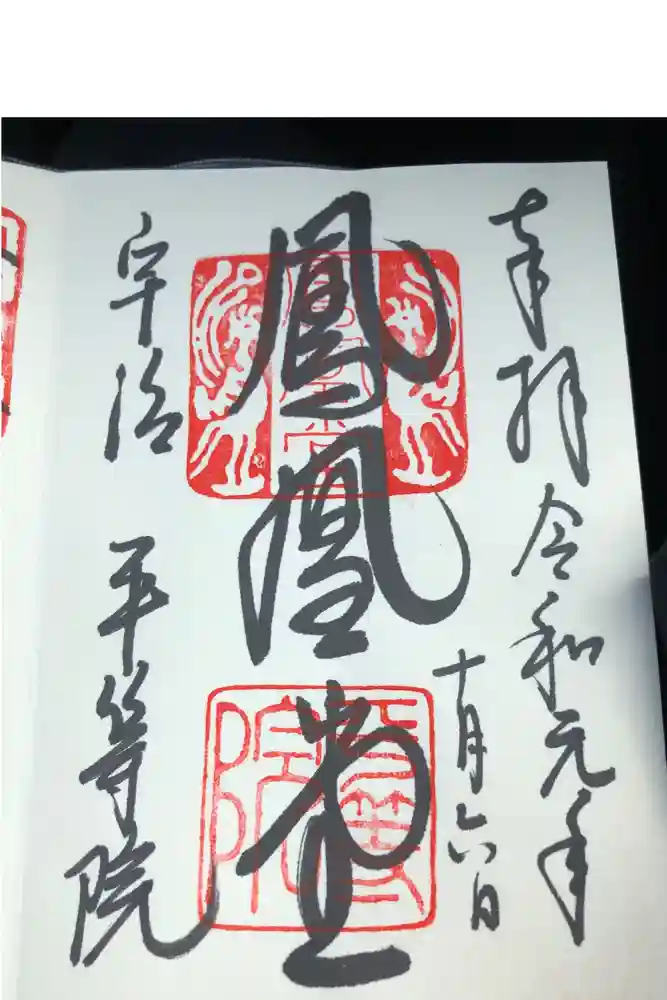 奉拝 令和元年
十月六日
鳳凰堂
宇治 平等院
鳳凰堂
平等院